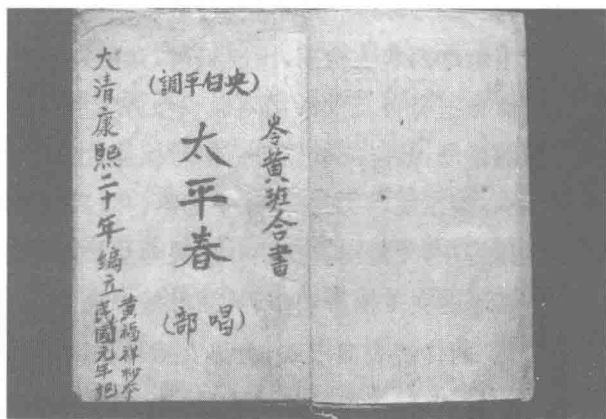 岑黄班合書
(央白平調)
太平春
(唱部)
大清康熙二十年编立
黄福祥抄本
民國元年記